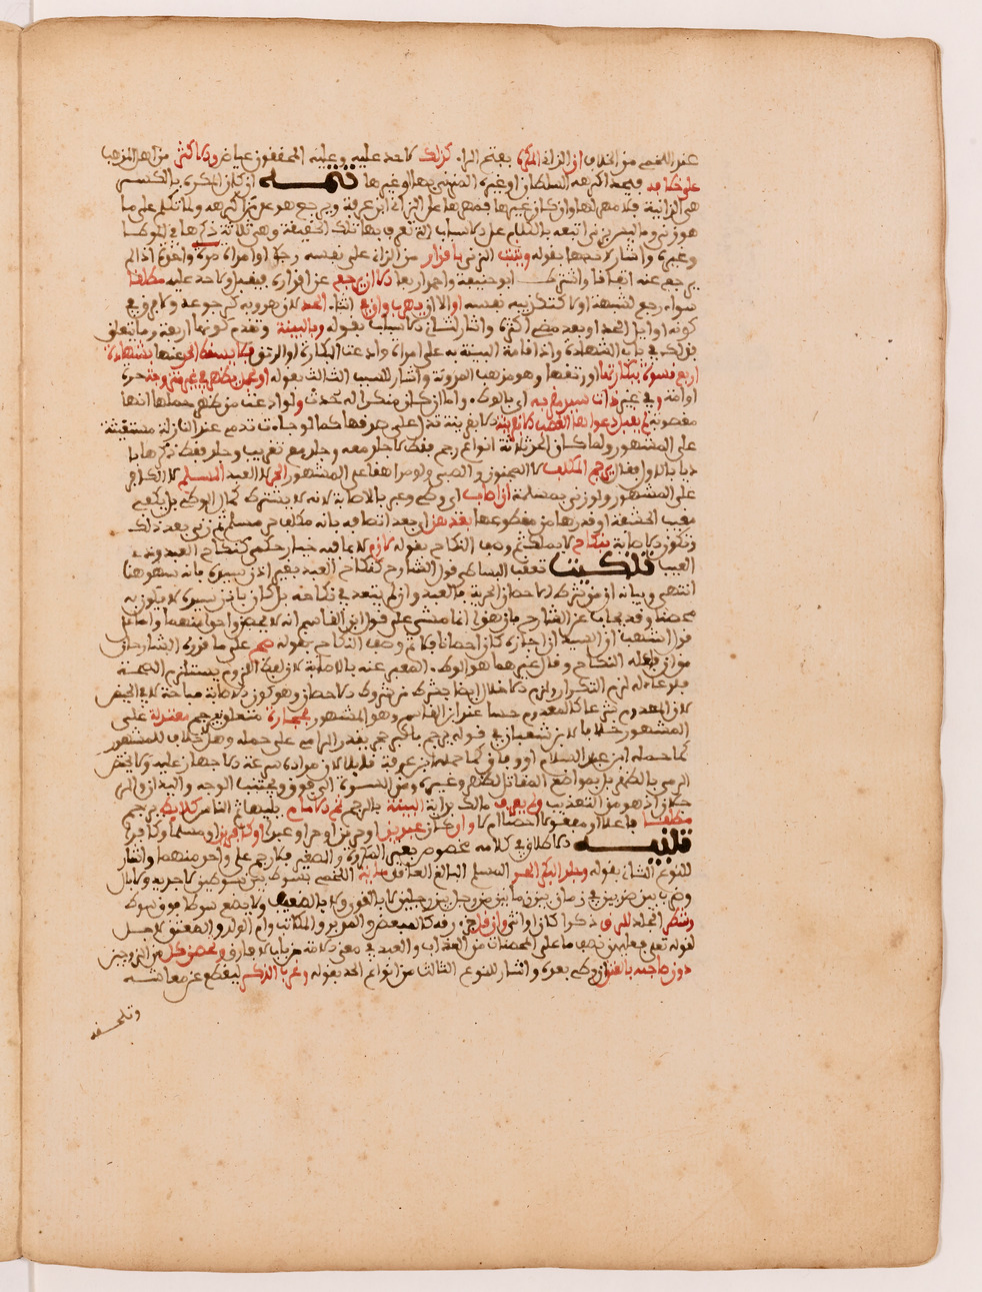 عند اللخمي من الخلاف ان الزاني المكره بفتح الراء كذلك لا حد عليه وعليه المحققون عياض والاكثر من اهل المذهب
على خلافه فيحد اكرهه السلطان او غيره المزني بها او غيرها تتمة ان كان المكره بالكسر
هي الزانية فلا مهر لها وان كان غيرها فمهرها على الزاني ابن عرفة ويرجع هو على من اكرهه ولما تكلم على ما
هو زنى وما ليس بزنى اتبعه بالكلام على الاسباب التي تعرف بها تلك الحقيقة وهي ثلاثة ذكرها في الموطا
وغيره واشار لاحدها بقوله ويثبت الزنى باقرار من الزاني على نفسه رجلا او امراة مرة واحدة اذا لم
يرجع عنه اتفاقا واشترط ابو حنيفة واحمد اربعا الا ان يرجع عن اقراره فيقبل ولا حد عليه مطلقا
سواء رجع لشبهة او لا كتكذيبه نفسه او الا ان يهرب وان في اثناء الحد لان هروبه كرجوعه ولا فرق في
كونه اول الحد او بعد مضي اكثره واشار لثاني الاسباب بقوله وبالبينة وتقدم كونها اربعة وما يتعلق
بذلك في باب الشهادة واذا قامت البينة به على امراة وادعت البكارة او الرتق فلا يسقط الحد عنها بشهادة
اربع نسوة ببكارتها او رتقها وهو مذهب المدونة واشار للسبب الثالث بقوله او بحمل يظهر في غير متزوجة حرة
او امة وفي غير ذات سيد مقر به اي بالوطء واما ان كان منكرا له تحدت ولو ادعت من ظهر حملها انها
مغصوبة لم يقبل دعواها الغصب بلا قرينة الا بقرينة تدل على صدقها كما لو جاءت تدمى عند النازلة مستغيثة
على المشهور ولما كان الحد ثلاثة انواع رجم فقط كا جلد معه وجلد مع تغريب وجلد فقط ذكرها بادئا
بالاول فقال يرجم المكلف لا المجنون والصبي ولو مراهقا على المشهور الحر لا العبد المسلم لا الكافر
على المشهور ولو زنى بمسلمة ان اصاب اي وطئ وعبر بالاصابة لانه لا يشترط كمال الوطء بل يكفي
مغيب الحشفة او قدرها من مقطوعها بعدهن اي بعد اتصافه بانه مكلف حر مسلم ثم زنى بعد ذلك
وتكون الاصابة بنكاح لا بملك ثم وصف النكاح بقوله لازم لا بما فيه خيار حكمي كنكاح العبد وذي
العيب قلت تعقب البساطي قول الشارح كنكاح العبد بغير اذن سيده بانه سهو هنا
انتهى وبيانه ان من شرط الاحصان الحرية فالعبد وان لم يتعد في نكاحه بل كان باذن سيده لا يكون به
محصنا وقد يجاب عن الشارح بان هذا انما مشى على قول ابن القاسم انه لا يحصن واحد منهما واما على
قول اشهب ان السيد ان اجازه كان احصانا فلا ثم وصف النكاح بقوله صح على ما قرره الشارحان
من ان فاعله النكاح وقال غيرهما هو الوطء المعبر عنه بالاصابة لان لفظ اللزوم يستلزم الصحة
فلو عاد له لزم التكرار ولزم الاخلال ايضا بشرط من شروط الاحصان وهو كون الاصابة مباحة لا في الحيض
لان المعدوم شرعا كالمعدوم حسا عند ابن القاسم وهو المشهور بحجارة متعلق بيرجم معتدلة على
المشهور خلافا لابن شعبان في قوله يرجم باكبر حجر يقدر الرامي على حمله وهل خلاف للمشهور
كما حمله ابن عبد السلام او وفاق كما حمله ابن عرفة قائلا لان مراده سرعة الاجهاز عليه ولا يختص
الرمي بالظهر بل بمواضع المقاتل الظهر وغيره ومن السرة الى فوق ويجتنب الوجه واليدان والرجلان
اذ هو من التعذيب ولم يعرف مالك بداية البينة بالرجم ثم الامام يليها ثم الناس كلائط يرجم
مطلقا فاعلا او مفعولا احصنا ام لا وان كانا عبدين او حرين او حر او عبدا او كافرين او مسلما وكافرا
تنبيه الاطلاق في كلامه مخصوص بغير المكره والصغير فلا رجم على واحد منهما واشار
للنوع الثاني بقوله وجلد البكر الحر المسلم البالغ العاقل مائة اللخمي بسوط بين سوطين لا جديد ولا بال
وضرب بين ضربين في زمان بين زمانين من رجل بين رجلين لا بالقوي ولا بالضعيف ولا يضع سوطا فوق سوط
وتشطر الجلد للرق ذكرا كان او انثى وان قل جزء رقه كالمبعض والمدبر والمكاتب وام الولد والمعتق لاجل
لقوله تعالى فعليهن نصف ما على المحصنات من العذاب والعبد في معنى الامة من باب لا فارق وتحصن كل من الزوجين
دون صاحبه بالعتق ان وطئ بعده واشار للنوع الثالث من انواع الحد بقوله وغرب الذكر ليقطع عن معاشه
وتلحقه